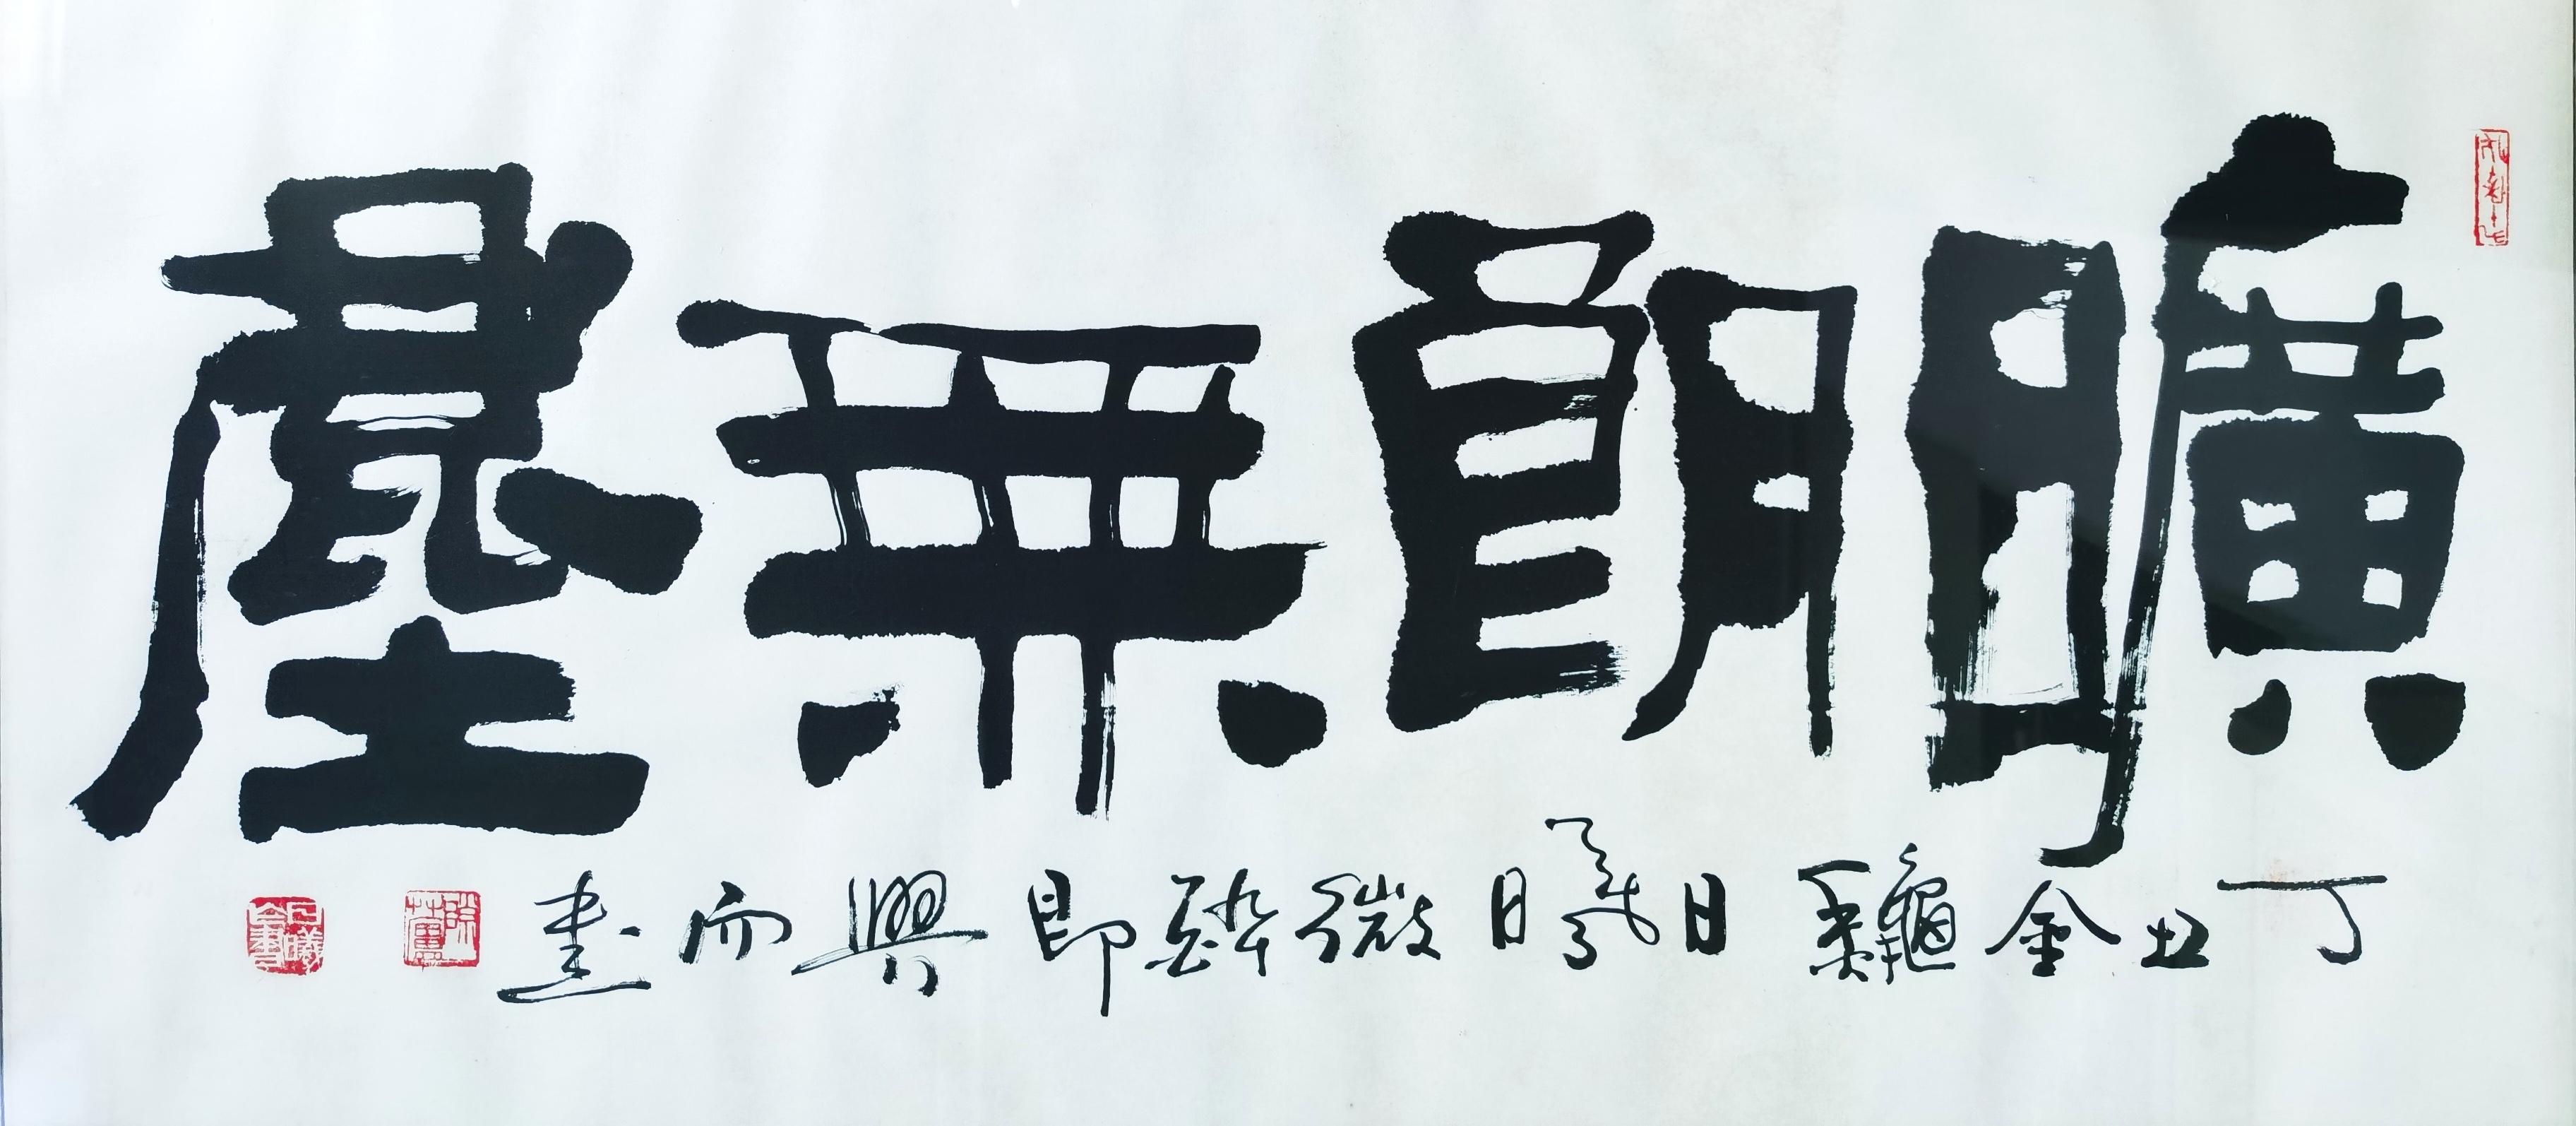 曠朗無塵
丁丑金龝日曦微醉即興而書